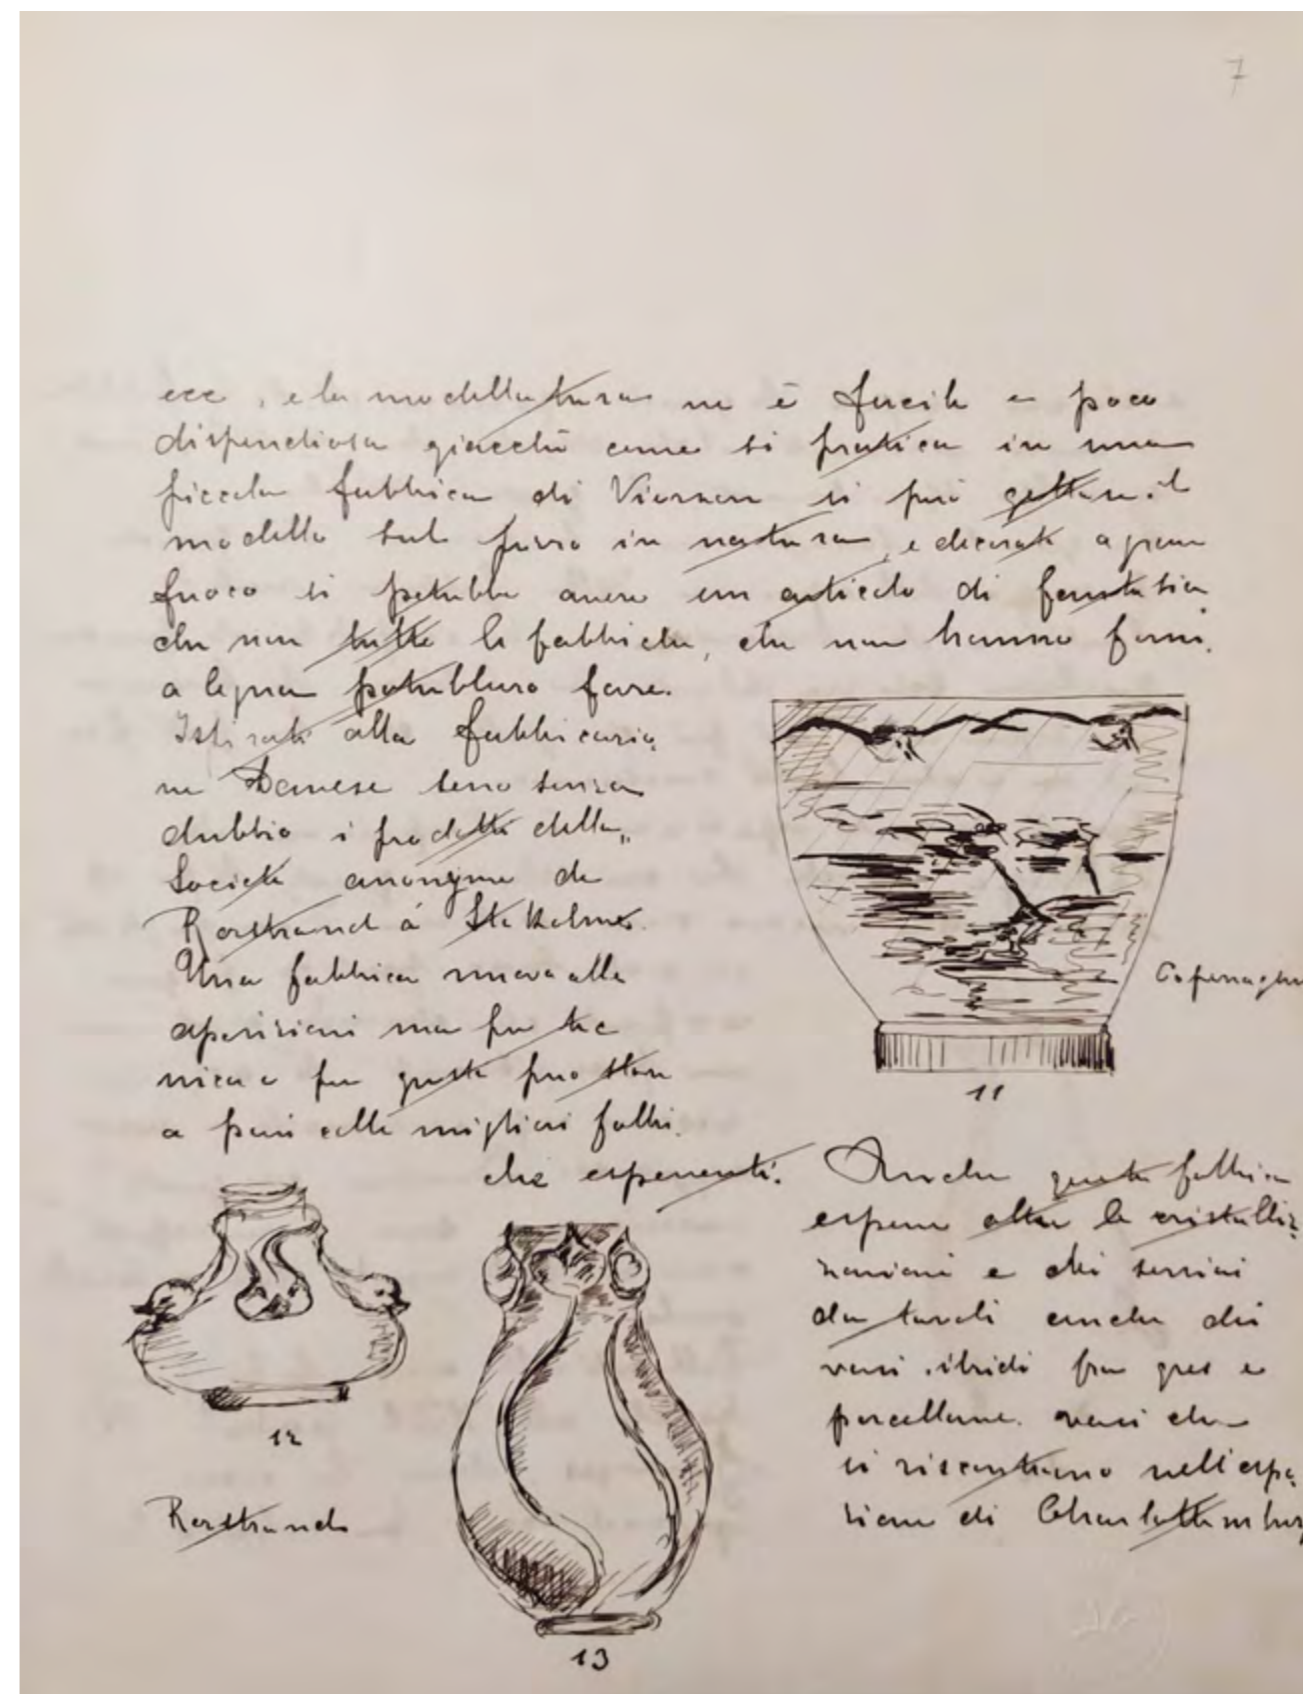 7
ecc, e la modellatura ne è facile e poco
dispendiosa giacchè come si pratica in una
piccola fabbrica di Vierzon si può gettare il
modello sul pezzo in natura, e decorati a gran
fuoco si potrebbe avere un articolo di fantasia
che non tutte le fabbriche, che non hanno forni
a legna potrebbero fare.
Ispirati alla fabbricazio
ne Danese sono senza
dubbio i prodotti della
Società anonyme de
Rorstrand à Stokolma.
Una fabbrica nuova alle
esposizioni ma per tec
nica e per gusto può stare
a pari colle migliori fabbri
che esponenti.
Copenaghen
11
12
Rorstrand
13
Anche questa fabbrica
espone oltre le cristalliz
zazioni e dei servizi
da tavoli anche dei
vasi ibridi fra gres e
porcellana. vasi che
si riscontrano nell'espo
sizione di Charlottemburg